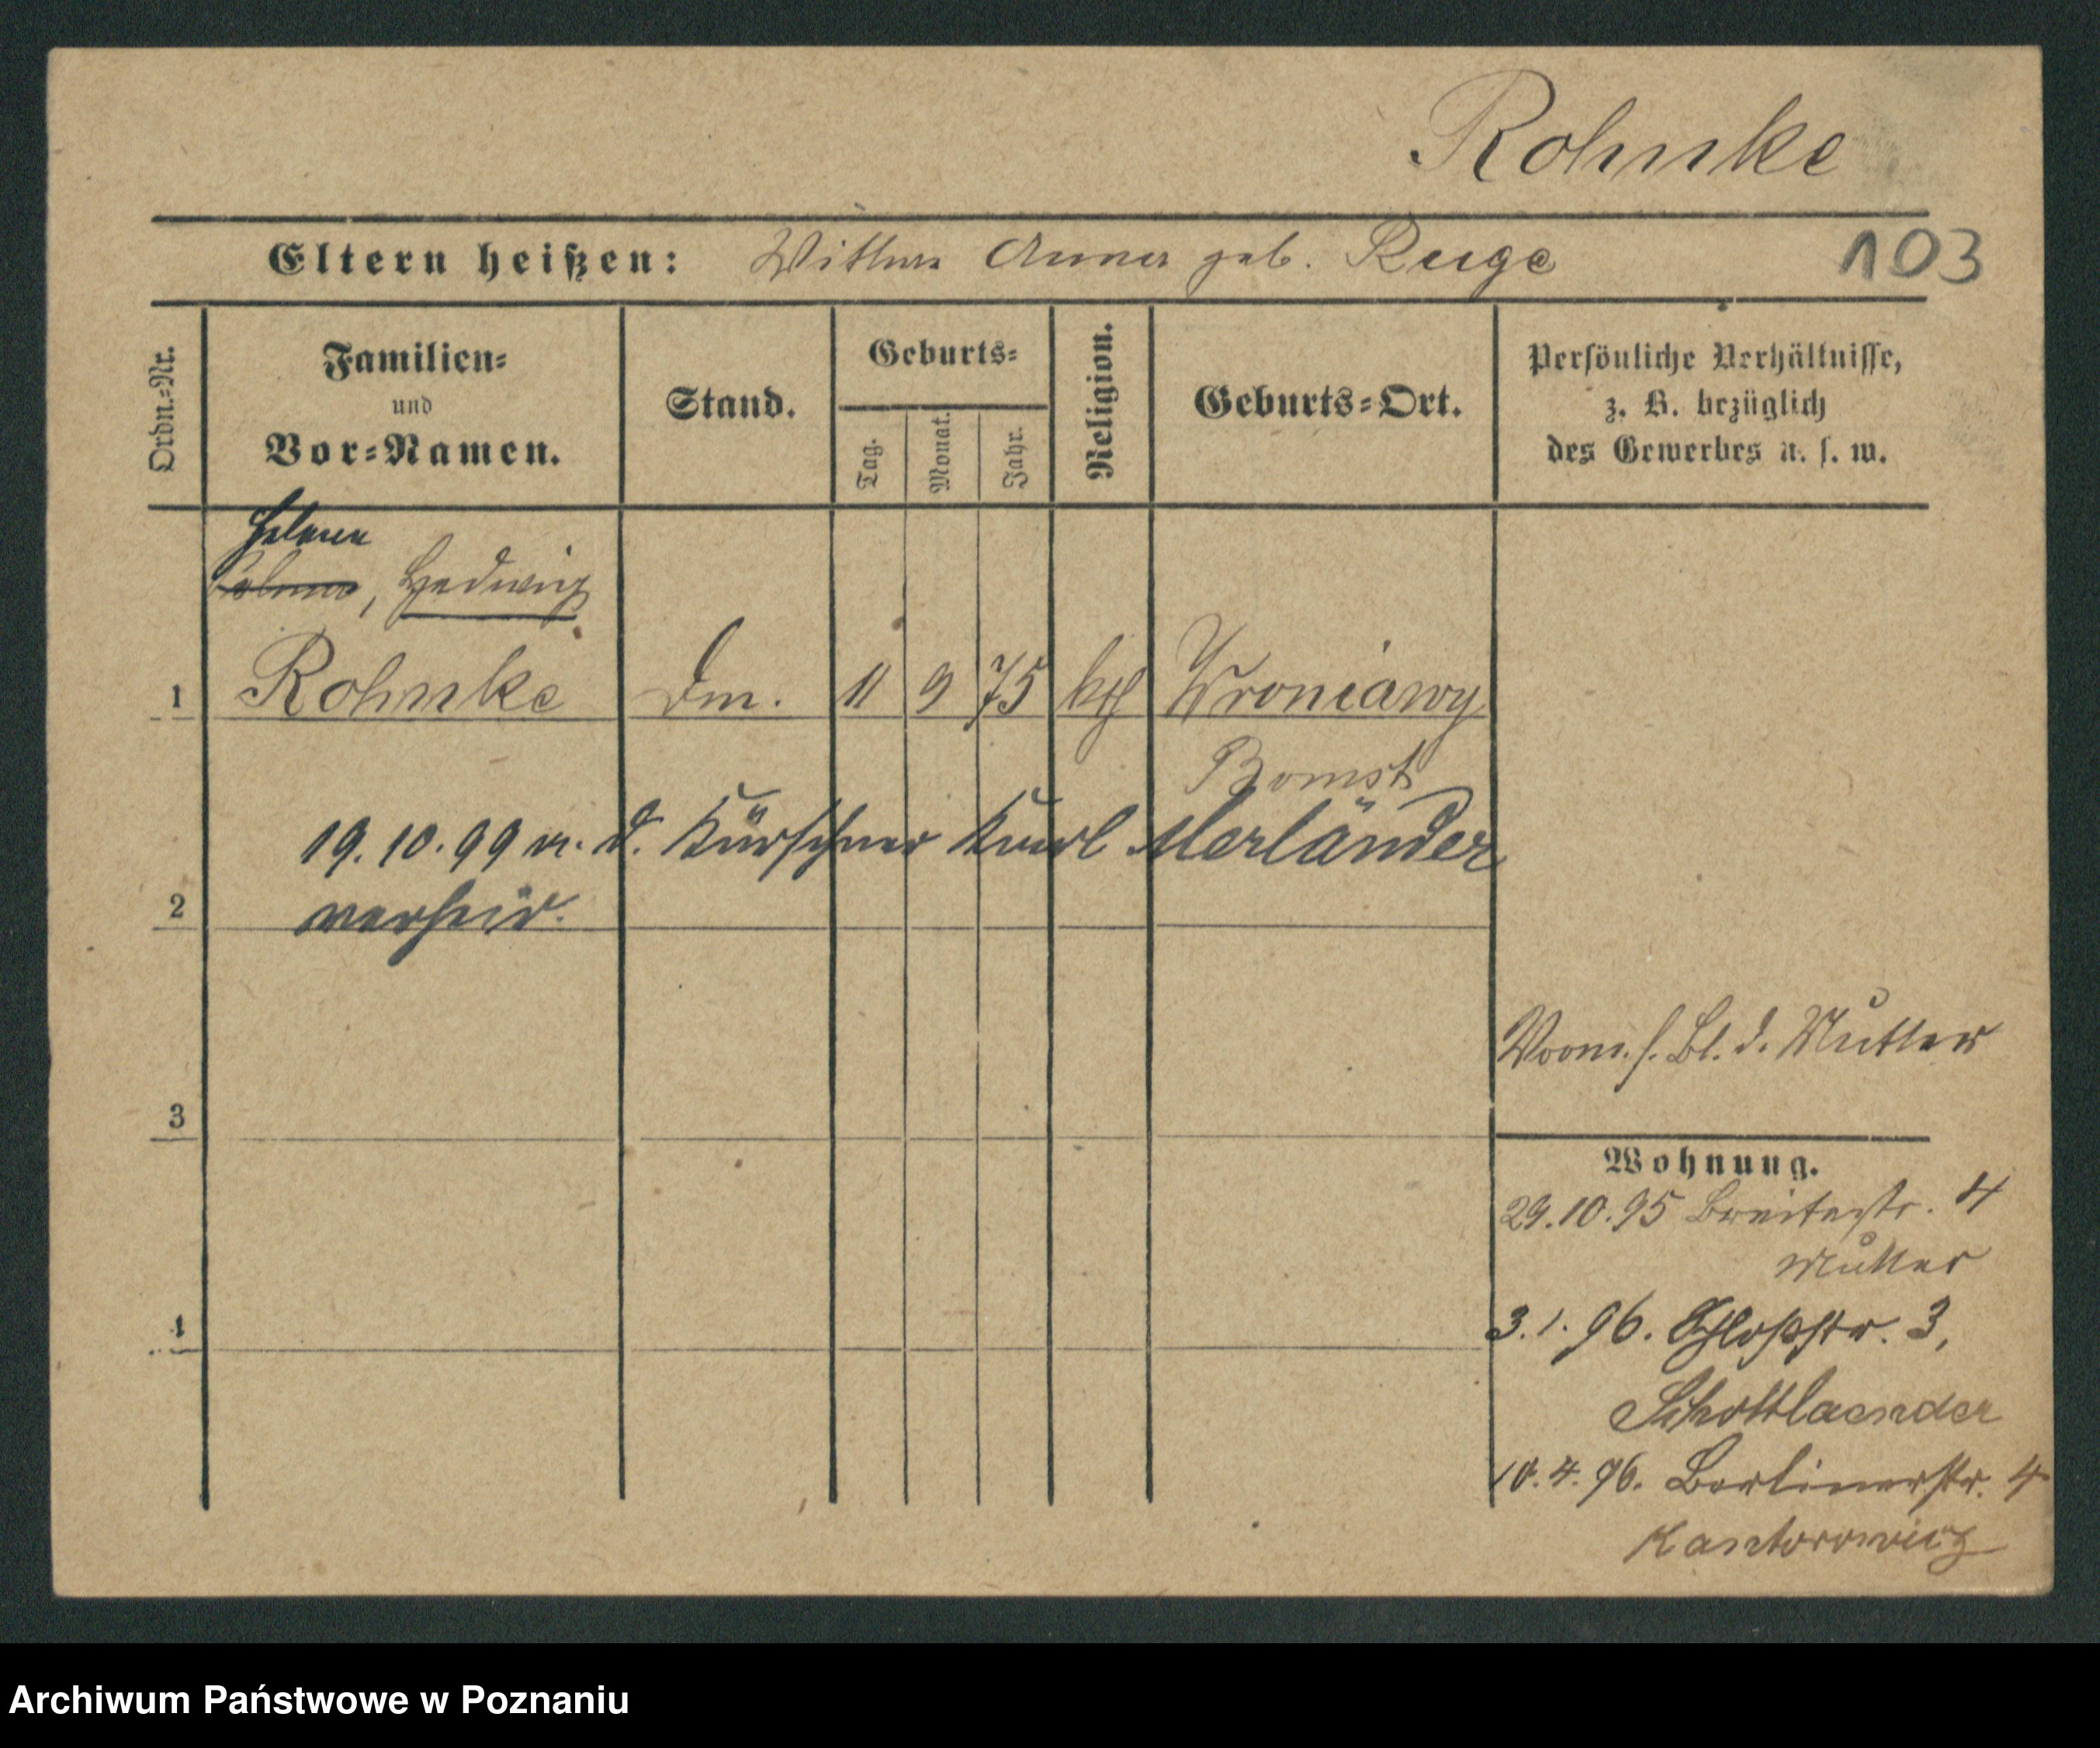 Rohnke
Eltern heißen: Wittwe Anna geb. Ruge
103
Ordn.-Nr.
Familien-
und
Vor-Namen.
Stand.
Geburts-
Tag.
Monat.
Jahr.
Religion.
Geburts-Ort.
Persönliche Verhältnisse,
z. B. bezüglich
des Gewerbes u. s. w.
Helene
, Hedwig
1 Rohnke Dm. 11 9 75 kth Wroniawy
Bomst
19.10.99 m. d. Kürschner Karl Merländer
2 verheir.
Vorm. s. Bl. d. Mutter
3
Wohnung.
29.10.95 Breitestr. 4
Mutter
4
3.1.96. Schloßstr. 3,
Schottlaender
10.4.96. Berlinerstr. 4
Kantorowicz
Archiwum Państwowe w Poznaniu